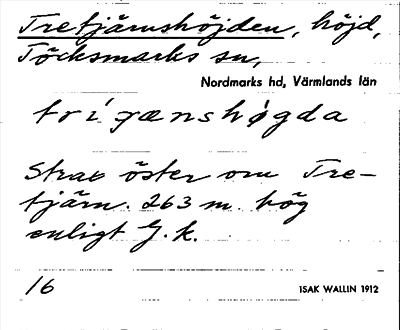 Tretjärnshöjden, höjd,
Töcksmarks sn,
Nordmarks hd, Värmlands län
trígænshøgda
Strax öster om Tre-
tjärn. 263 m. hög
enligt G.k.
16
ISAK WALLIN 1912